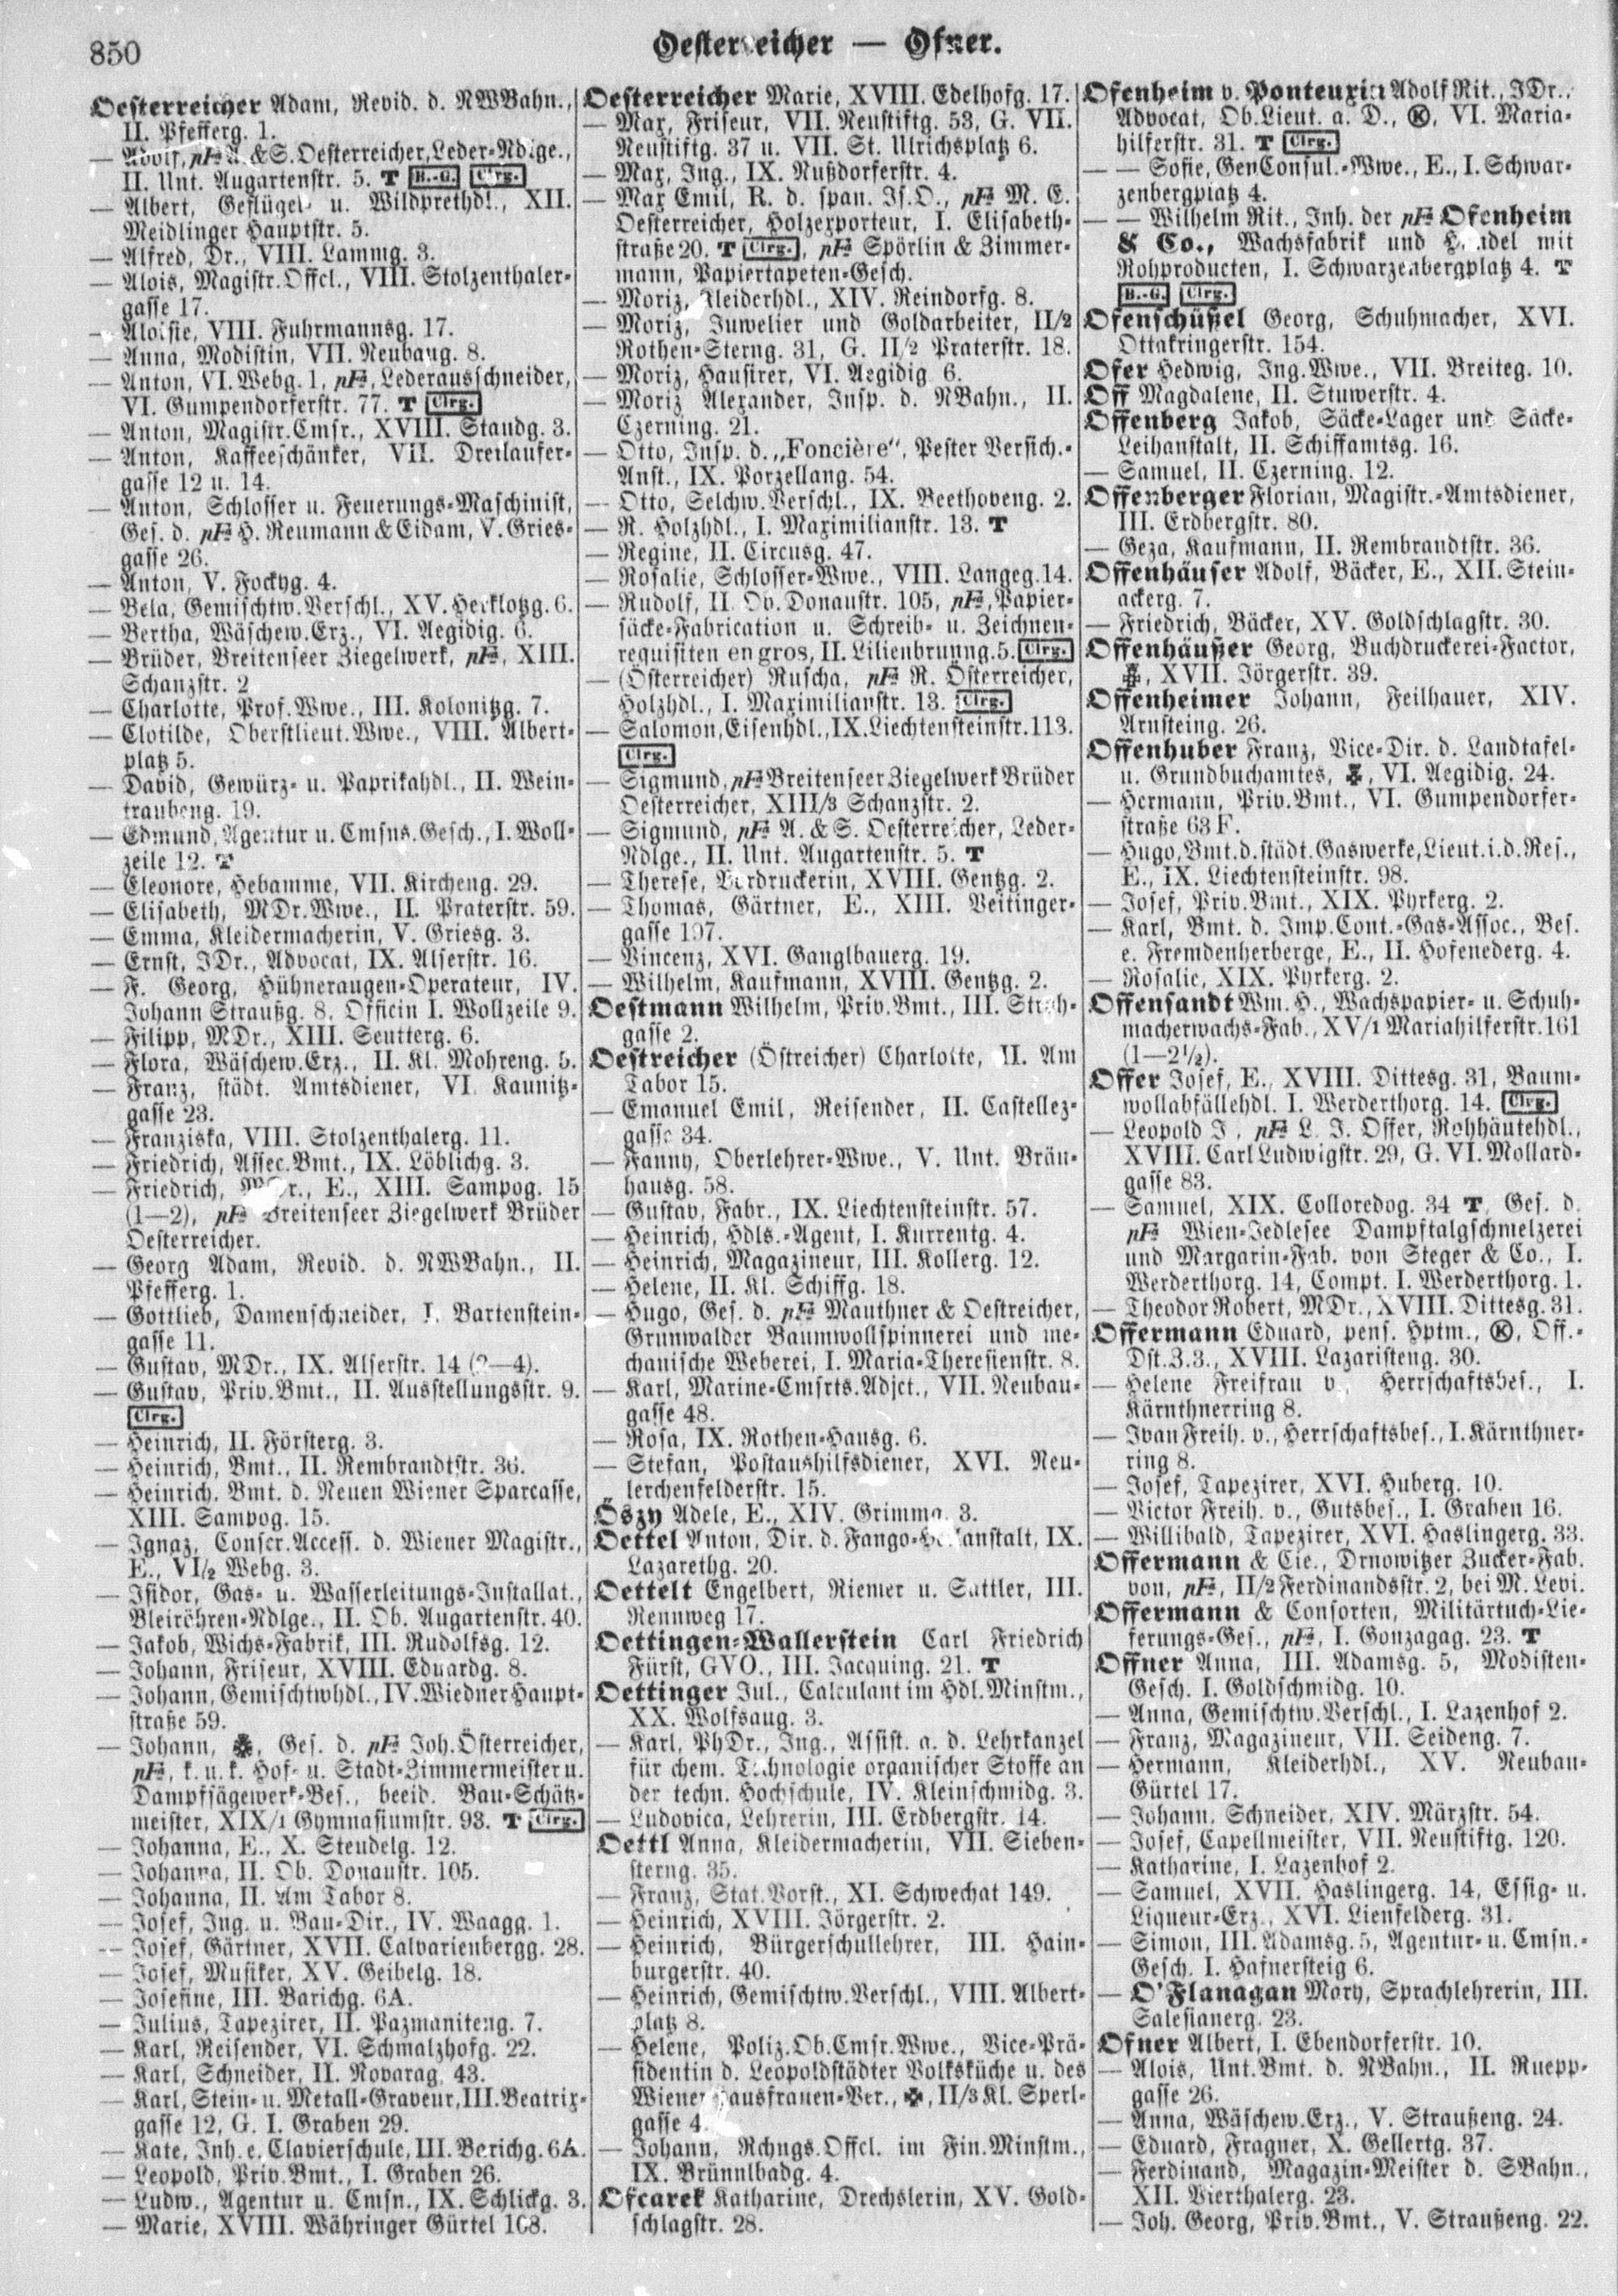 850
Oesterreicher — Ofner.
Oesterreicher Adam, Revid. d. NWBahn.,
II. Pfefferg. 1.
— Adolf, pFa A. & S. Oesterreicher, Leder-Ndlge.,
II. Unt. Augartenstr. 5. T B.-G. Clrg.
— Albert, Geflügel- u. Wildprethdl., XII.
Meidlinger Hauptstr. 5.
— Alfred, Dr., VIII. Lammg. 3.
— Alois, Magistr.Offcl., VIII. Stolzenthaler-
gasse 17.
— Aloisie, VIII. Fuhrmannsg. 17.
— Anna, Modistin, VII. Neubaug. 8.
— Anton, VI. Webg. 1, pFa, Lederausschneider,
VI. Gumpendorferstr. 77. T Clrg.
— Anton, Magistr.Cmsr., XVIII. Staudg. 3.
— Anton, Kaffeeschänker, VII. Dreilaufer-
gasse 12 u. 14.
— Anton, Schlosser u. Feuerungs-Maschinist,
Ges. d. pFa H. Reumann & Eidam, V. Gries-
gasse 26.
— Anton, V. Fockyg. 4.
— Bela, Gemischtw.Verschl., XV. Herklotzg. 6.
— Bertha, Wäschew.Erz., VI. Aegidig. 6.
— Brüder, Breitenseer Ziegelwerk, pFa, XIII.
Schanzstr. 2
— Charlotte, Prof.Wwe., III. Kolonitzg. 7.
— Clotilde, Oberstlieut.Wwe., VIII. Albert-
platz 5.
— David, Gewürz- u. Paprikahdl., II. Wein-
traubeng. 19.
— Edmund, Agentur u. Cmsns.Gesch., I. Woll-
zeile 12. T
— Eleonore, Hebamme, VII. Kircheng. 29.
— Elisabeth, MDr.Wwe., II. Praterstr. 59.
— Emma, Kleidermacherin, V. Griesg. 3.
— Ernst, JDr., Advocat, IX. Alserstr. 16.
— F. Georg, Hühneraugen-Operateur, IV.
Johann Straußg. 8, Officin I. Wollzeile 9.
— Filipp, MDr., XIII. Seutterg. 6.
— Flora, Wäschew.Erz., II. Kl. Mohreng. 5.
— Franz, städt. Amtsdiener, VI. Kaunitz-
gasse 23.
— Franziska, VIII. Stolzenthalerg. 11.
— Friedrich, Assec.Bmt., IX. Löblichg. 3.
— Friedrich, MDr., E., XIII. Sampog. 15
(1—2), pFa Breitenseer Ziegelwerk Brüder
Oesterreicher.
— Georg Adam, Revid. d. NWBahn., II.
Pfefferg. 1.
— Gottlieb, Damenschneider, I. Bartenstein-
gasse 11.
— Gustav, MDr., IX. Alserstr. 14 (2—4).
— Gustav, Priv.Bmt., II. Ausstellungsstr. 9.
Clrg.
— Heinrich, II. Försterg. 3.
— Heinrich, Bmt., II. Rembrandtstr. 36.
— Heinrich, Bmt. d. Neuen Wiener Sparcasse,
XIII. Sampog. 15.
— Ignaz, Conscr.Access. d. Wiener Magistr.,
E., VI/2 Webg. 3.
— Isidor, Gas- u. Wasserleitungs-Installat.,
Bleiröhren-Ndlge., II. Ob. Augartenstr. 40.
— Jakob, Wichs-Fabrik, III. Rudolfsg. 12.
— Johann, Friseur, XVIII. Eduardg. 8.
— Johann, Gemischtwhdl., IV. Wiedner Haupt-
straße 59.
— Johann, Ges. d. pFa Joh. Österreicher,
pFa, k. u. k. Hof- u. Stadt-Zimmermeister u.
Dampfsägewerk-Bes., beeid. Bau-Schätz-
meister, XIX/1 Gymnasiumstr. 93. T Clrg.
— Johanna, E., X. Steudelg. 12.
— Johanna, II. Ob. Donaustr. 105.
— Johanna, II. Am Tabor 8.
— Josef, Ing. u. Bau-Dir., IV. Waagg. 1.
— Josef, Gärtner, XVII. Calvarienbergg. 28.
— Josef, Musiker, XV. Geibelg. 18.
— Josefine, III. Barichg. 6A.
— Julius, Tapezirer, II. Pazmaniteng. 7.
— Karl, Reisender, VI. Schmalzhofg. 22.
— Karl, Schneider, II. Novarag. 43.
— Karl, Stein- u. Metall-Graveur, III. Beatrix-
gasse 12, G. I. Graben 29.
— Kate, Inh. e. Clavierschule, III. Barichg. 6A.
— Leopold, Priv.Bmt., I. Graben 26.
— Ludw., Agentur u. Cmsn., IX. Schlickg. 3.
— Marie, XVIII. Währinger Gürtel 108.
Oesterreicher Marie, XVIII. Edelhofg. 17.
— Max, Friseur, VII. Neustiftg. 53, G. VII.
Neustiftg. 37 u. VII. St. Ulrichsplatz 6.
— Max, Ing., IX. Nußdorferstr. 4.
— Max Emil, R. d. span. Is.O., pFa M. E.
Oesterreicher, Holzexporteur, I. Elisabeth-
straße 20. T Clrg., pFa Spörlin & Zimmer-
mann, Papiertapeten-Gesch.
— Moriz, Kleiderhdl., XIV. Reindorfg. 8.
— Moriz, Juwelier und Goldarbeiter, II/2
Rothen-Sterng. 31, G. II/2 Praterstr. 18.
— Moriz, Hausirer, VI. Aegidig 6.
— Moriz Alexander, Insp. d. NBahn., II.
Czerning. 21.
— Otto, Insp. d. „Foncière“, Pester Versich.-
Anst., IX. Porzellang. 54.
— Otto, Selchw.Verschl., IX. Beethoveng. 2.
— R. Holzhdl., I. Maximilianstr. 13. T
— Regine, II. Circusg. 47.
— Rosalie, Schlosser-Wwe., VIII. Langeg. 14.
— Rudolf, II. Ob. Donaustr. 105, pFa, Papier-
säcke-Fabrication u. Schreib- u. Zeichnen-
requisiten en gros, II. Lilienbrunng. 5. Clrg.
— (Österreicher) Ruscha, pFa R. Österreicher,
Holzhdl., I. Maximilianstr. 13. Clrg.
— Salomon, Eisenhdl., IX. Liechtensteinstr. 113.
Clrg.
— Sigmund, pFa Breitenseer Ziegelwerk Brüder
Oesterreicher, XIII/3 Schanzstr. 2.
— Sigmund, pFa A. & S. Oesterreicher, Leder-
Ndlge., II. Unt. Augartenstr. 5. T
— Therese, Vordruckerin, XVIII. Gentzg. 2.
— Thomas, Gärtner, E., XIII. Veitinger-
gasse 107.
— Vincenz, XVI. Ganglbauerg. 19.
— Wilhelm, Kaufmann, XVIII. Gentzg. 2.
Oestmann Wilhelm, Priv.Bmt., III. Stroh-
gasse 2.
Oestreicher (Östreicher) Charlotte, II. Am
Tabor 15.
— Emanuel Emil, Reisender, II. Castellez-
gasse 34.
— Fanny, Oberlehrer-Wwe., V. Unt. Bräu-
hausg. 58.
— Gustav, Fabr., IX. Liechtensteinstr. 57.
— Heinrich, Hdls.-Agent, I. Kurrentg. 4.
— Heinrich, Magazineur, III. Kollerg. 12.
— Helene, II. Kl. Schiffg. 18.
— Hugo, Ges. d. pFa Mauthner & Oestreicher,
Grünwalder Baumwollspinnerei und me-
chanische Weberei, I. Maria-Theresienstr. 8.
— Karl, Marine-Cmsrts.Adjct., VII. Neubau-
gasse 48.
— Rosa, IX. Rothen-Hausg. 6.
— Stefan, Postaushilfsdiener, XVI. Neu-
lerchenfelderstr. 15.
Öszy Adele, E., XIV. Grimmg. 3.
Oettel Anton, Dir. d. Fango-Heilanstalt, IX.
Lazarethg. 20.
Oettelt Engelbert, Riemer u. Sattler, III.
Rennweg 17.
Oettingen-Wallerstein Carl Friedrich
Fürst, GVO., III. Jacquing. 21. T
Oettinger Jul., Calculant im Hdl.Minstm.,
XX. Wolfsaug. 3.
— Karl, PhDr., Ing., Assist. a. d. Lehrkanzel
für chem. Technologie organischer Stoffe an
der techn. Hochschule, IV. Kleinschmidg. 3.
— Ludovica, Lehrerin, III. Erdbergstr. 14.
Oettl Anna, Kleidermacherin, VII. Sieben-
sterng. 35.
— Franz, Stat.Vorst., XI. Schwechat 149.
— Heinrich, XVIII. Jörgerstr. 2.
— Heinrich, Bürgerschullehrer, III. Hain-
burgerstr. 40.
— Heinrich, Gemischtw.Verschl., VIII. Albert-
platz 8.
— Helene, Poliz.Ob.Cmsr.Wwe., Vice-Prä-
sidentin d. Leopoldstädter Volksküche u. des
Wiener Hausfrauen-Ver., II/3 Kl. Sperl-
gasse 4.
— Johann, Rchngs.Offcl. im Fin.Minstm.,
IX. Brünnlbadg. 4.
Ofcarek Katharine, Drechslerin, XV. Gold-
schlagstr. 28.
Ofenheim v. Ponteuxin Adolf Rit., JDr.,
Advocat, Ob.Lieut. a. D., K, VI. Maria-
hilferstr. 31. T Clrg.
— — Sofie, GenConsul.-Wwe., E., I. Schwar-
zenbergplatz 4.
— — Wilhelm Rit., Inh. der pFa Ofenheim
& Co., Wachsfabrik und Handel mit
Rohproducten, I. Schwarzenbergplatz 4. T
B.-G. Clrg.
Ofenschüßel Georg, Schuhmacher, XVI.
Ottakringerstr. 154.
Ofer Hedwig, Ing.Wwe., VII. Breiteg. 10.
Off Magdalene, II. Stuwerstr. 4.
Offenberg Jakob, Säcke-Lager und Säcke-
Leihanstalt, II. Schiffamtsg. 16.
— Samuel, II. Czerning. 12.
Offenberger Florian, Magistr.-Amtsdiener,
III. Erdbergstr. 80.
— Geza, Kaufmann, II. Rembrandtstr. 36.
Offenhäuser Adolf, Bäcker, E., XII. Stein-
ackerg. 7.
— Friedrich, Bäcker, XV. Goldschlagstr. 30.
Offenhäußer Georg, Buchdruckerei-Factor,
XVII. Jörgerstr. 39.
Offenheimer Johann, Feilhauer, XIV.
Arnsteing. 26.
Offenhuber Franz, Vice-Dir. d. Landtafel-
u. Grundbuchamtes, VI. Aegidig. 24.
— Hermann, Priv.Bmt., VI. Gumpendorfer-
straße 63 F.
— Hugo, Bmt. d. städt. Gaswerke, Lieut. i. d. Res.,
E., IX. Liechtensteinstr. 98.
— Josef, Priv.Bmt., XIX. Pyrkerg. 2.
— Karl, Bmt. d. Imp.Cont.-Gas-Assoc., Bes.
e. Fremdenherberge, E., II. Hofenederg. 4.
— Rosalie, XIX. Pyrkerg. 2.
Offensandt Wm. H., Wachspapier- u. Schuh-
macherwachs-Fab., XV/1 Mariahilferstr. 161
(1—2½).
Offer Josef, E., XVIII. Dittesg. 31, Baum-
wollabfällehdl. I. Werderthorg. 14. Clrg.
— Leopold J., pFa L. J. Offer, Rohhäutehdl.,
XVIII. Carl Ludwigstr. 29, G. VI. Mollard-
gasse 83.
— Samuel, XIX. Colloredog. 34 T, Ges. d.
pFa Wien-Jedlesee Dampftalgschmelzerei
und Margarin-Fab. von Steger & Co., I.
Werderthorg. 14, Compt. I. Werderthorg. 1.
— Theodor Robert, MDr., XVIII. Dittesg. 31.
Offermann Eduard, pens. Hptm., K, Off.-
Dst.Z.3., XVIII. Lazaristeng. 30.
— Helene Freifrau v., Herrschaftsbes., I.
Kärnthnerring 8.
— Ivan Freih. v., Herrschaftsbes., I. Kärnthner-
ring 8.
— Josef, Tapezirer, XVI. Huberg. 10.
— Victor Freih. v., Gutsbes., I. Graben 16.
— Willibald, Tapezirer, XVI. Haslingerg. 33.
Offermann & Cie., Drnowitzer Zucker-Fab.
von, pFa, II/2 Ferdinandsstr. 2, bei M. Levi.
Offermann & Consorten, Militärtuch-Lie-
ferungs-Ges., pFa, I. Gonzagag. 23. T
Offner Anna, III. Adamsg. 5, Modisten-
Gesch. I. Goldschmidg. 10.
— Anna, Gemischtw.Verschl., I. Lazenhof 2.
— Franz, Magazineur, VII. Seideng. 7.
— Hermann, Kleiderhdl., XV. Neubau-
Gürtel 17.
— Johann, Schneider, XIV. Märzstr. 54.
— Josef, Capellmeister, VII. Neustiftg. 120.
— Katharine, I. Lazenhof 2.
— Samuel, XVII. Haslingerg. 14, Essig- u.
Liqueur-Erz., XVI. Lienfelderg. 31.
— Simon, III. Adamsg. 5, Agentur- u. Cmsn.-
Gesch. I. Hafnersteig 6.
— O'Flanagan Mary, Sprachlehrerin, III.
Salesianerg. 23.
Ofner Albert, I. Ebendorferstr. 10.
— Alois, Unt.Bmt. d. NBahn., II. Ruepp-
gasse 26.
— Anna, Wäschew.Erz., V. Straußeng. 24.
— Eduard, Fragner, X. Gellertg. 37.
— Ferdinand, Magazin-Meister d. SBahn.,
XII. Vierthalerg. 23.
— Joh. Georg, Priv.Bmt., V. Straußeng. 22.